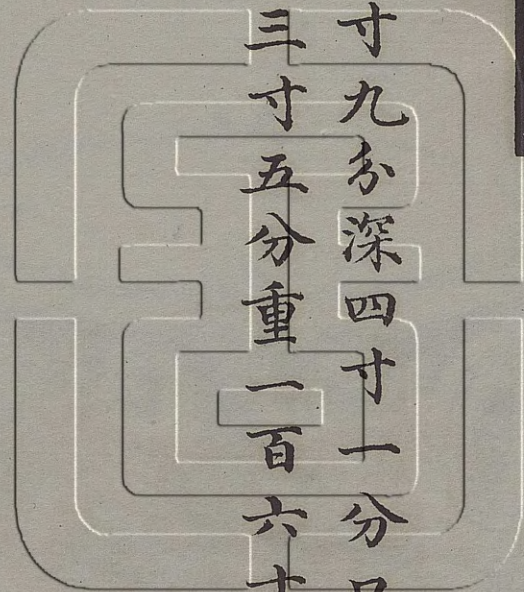 寸九分深四寸一分口
三寸五分重一百六十